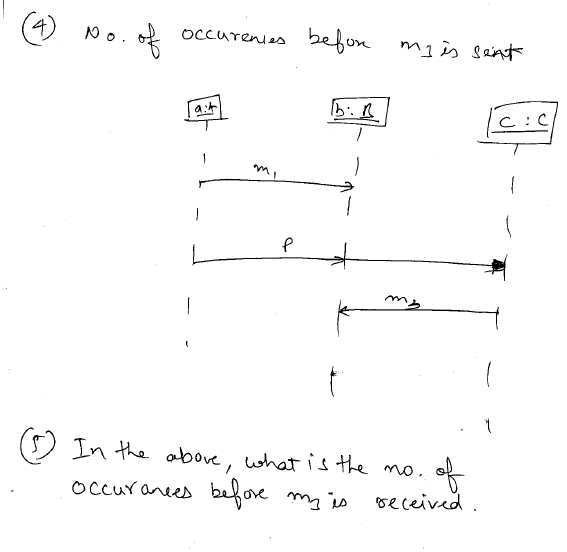 (4) No. of occurenies before m3 is sent
a:A b:B C:C
m1
P
m3
(5) In the above, what is the no. of
occurances before m3 is received.